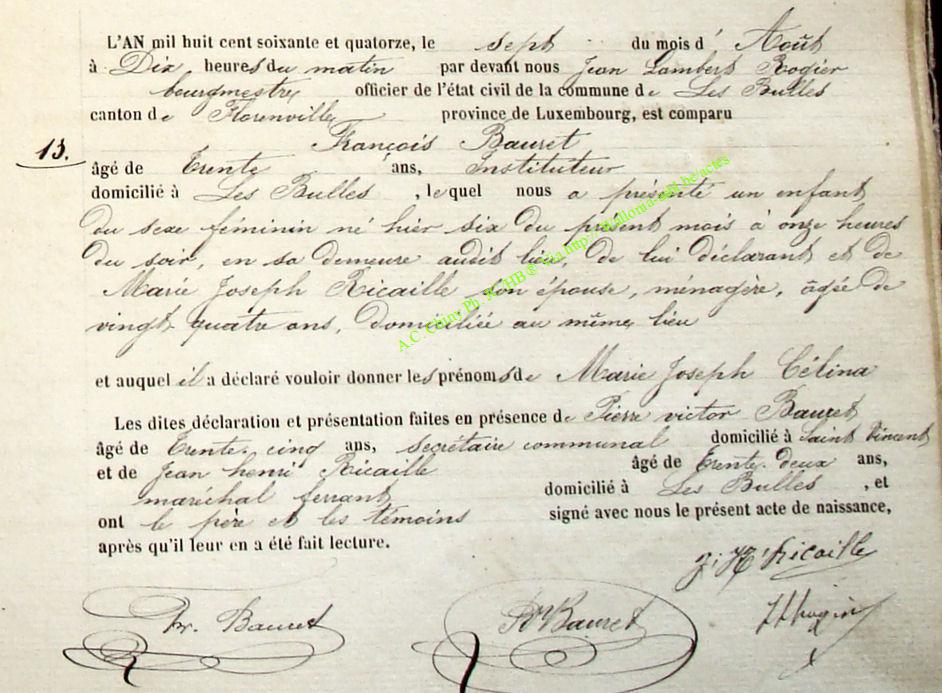 L'AN mil huit cent soixante et quatorze, le sept du mois d' Août
à Dix heures du matin par devant nous Jean Lambert Rogier
bourgmestre officier de l'état civil de la commune de Les Bulles
canton de Florenville province de Luxembourg, est comparu
13. François Bauret
âgé de trente ans, Instituteur
domicilié à Les Bulles, lequel nous a présenté un enfant
du sexe féminin né hier six du présent mois à onze heures
du soir, en sa demeure audit lieu, de lui déclarant et de
Marie Joseph Ricaille son épouse, ménagère, âgée de
vingt quatre ans, domiciliée au même lieu
et auquel il a déclaré vouloir donner les prénoms de Marie Joseph Célina
Les dites déclaration et présentation faites en présence de Pierre victor Bauret
âgé de Trente-cinq ans, secrétaire communal domicilié à Saint Vincent
et de Jean henri Ricaille âgé de trente-deux ans,
maréchal ferrant domicilié à Les Bulles, et
ont le père et les témoins signé avec nous le présent acte de naissance,
après qu'il leur en a été fait lecture.
J. H. Ricaille
Fr. Bauret PV Bauret
A.C. Chiny Ph. HB® via http://wallonia-asbl.be/actes